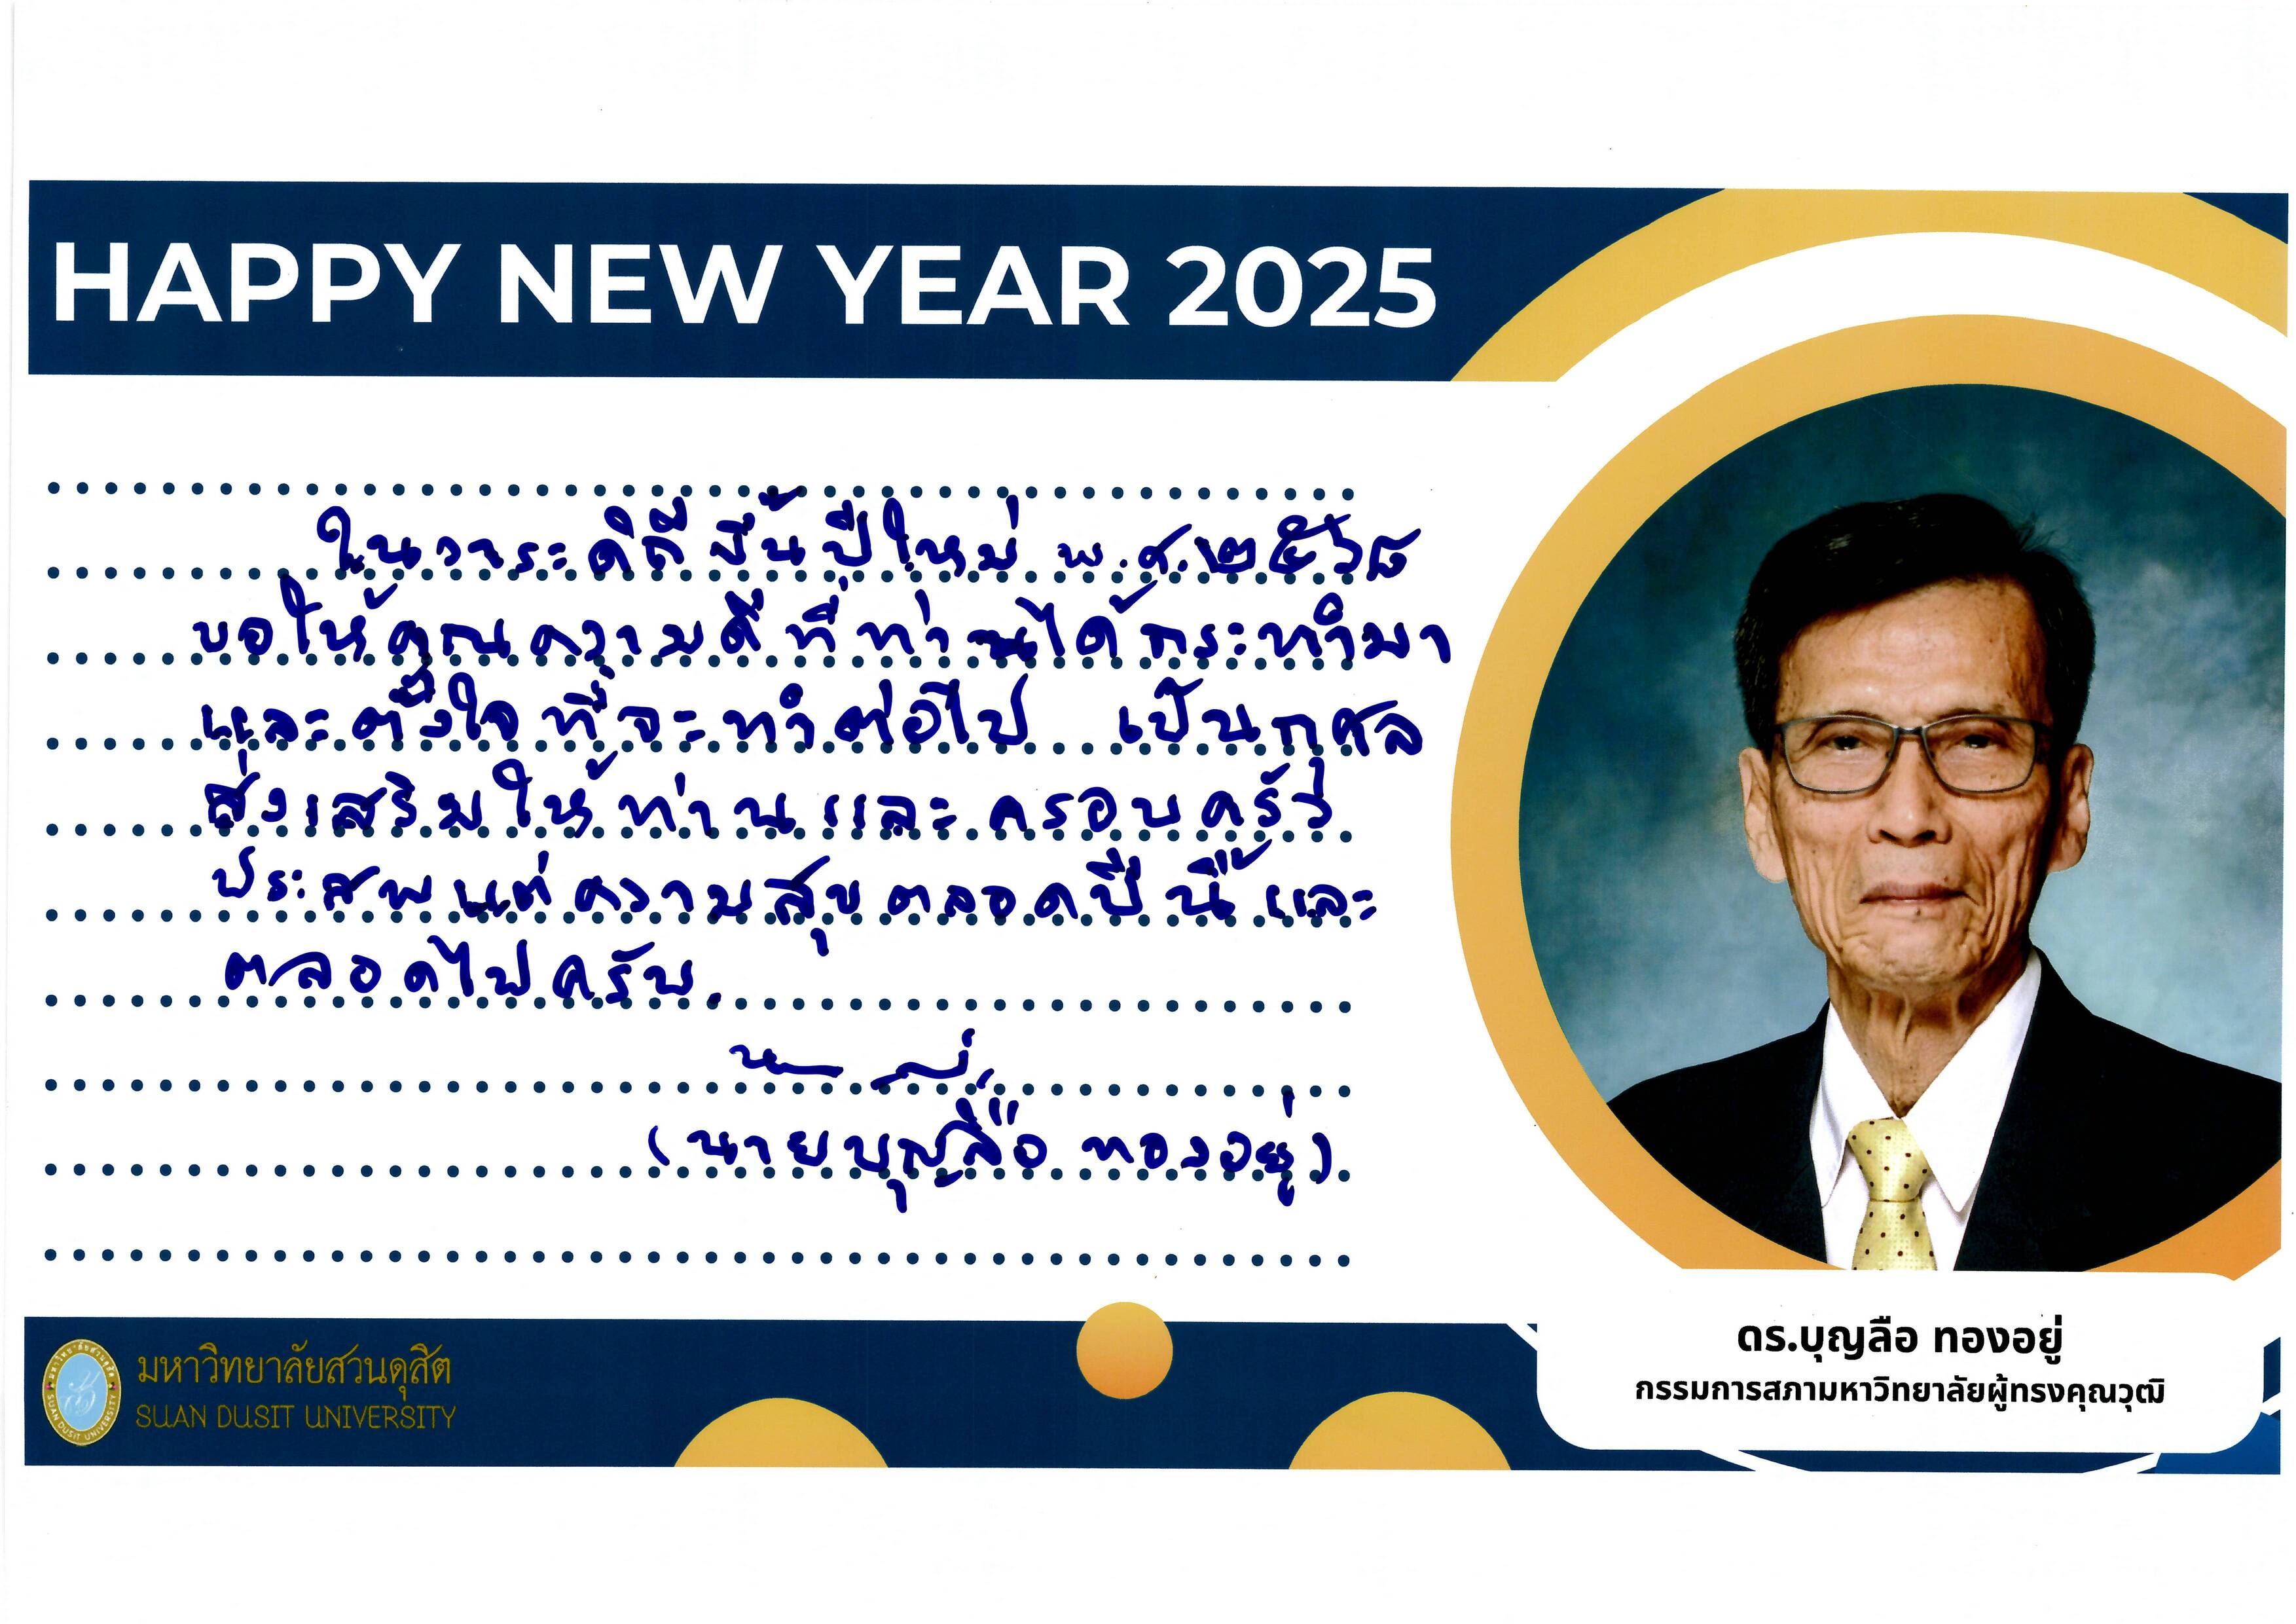 HAPPY NEW YEAR 2025
ในวาระดิถีขึ้นปีใหม่ พ.ศ.๒๕๖๘
ขอให้คุณความดีที่ท่านได้กระทำมา
และตั้งใจที่จะทำต่อไป เป็นกุศล
ส่งเสริมให้ท่านและครอบครัว
ประสพแต่ความสุขตลอดปีนี้และ
ตลอดไปครับ.
(นายบุญลือ ทองอยู่)
ดร.บุญลือ ทองอยู่
กรรมการสภามหาวิทยาลัยผู้ทรงคุณวุฒิ
มหาวิทยาลัยสวนดุสิต
SUAN DUSIT UNIVERSITY